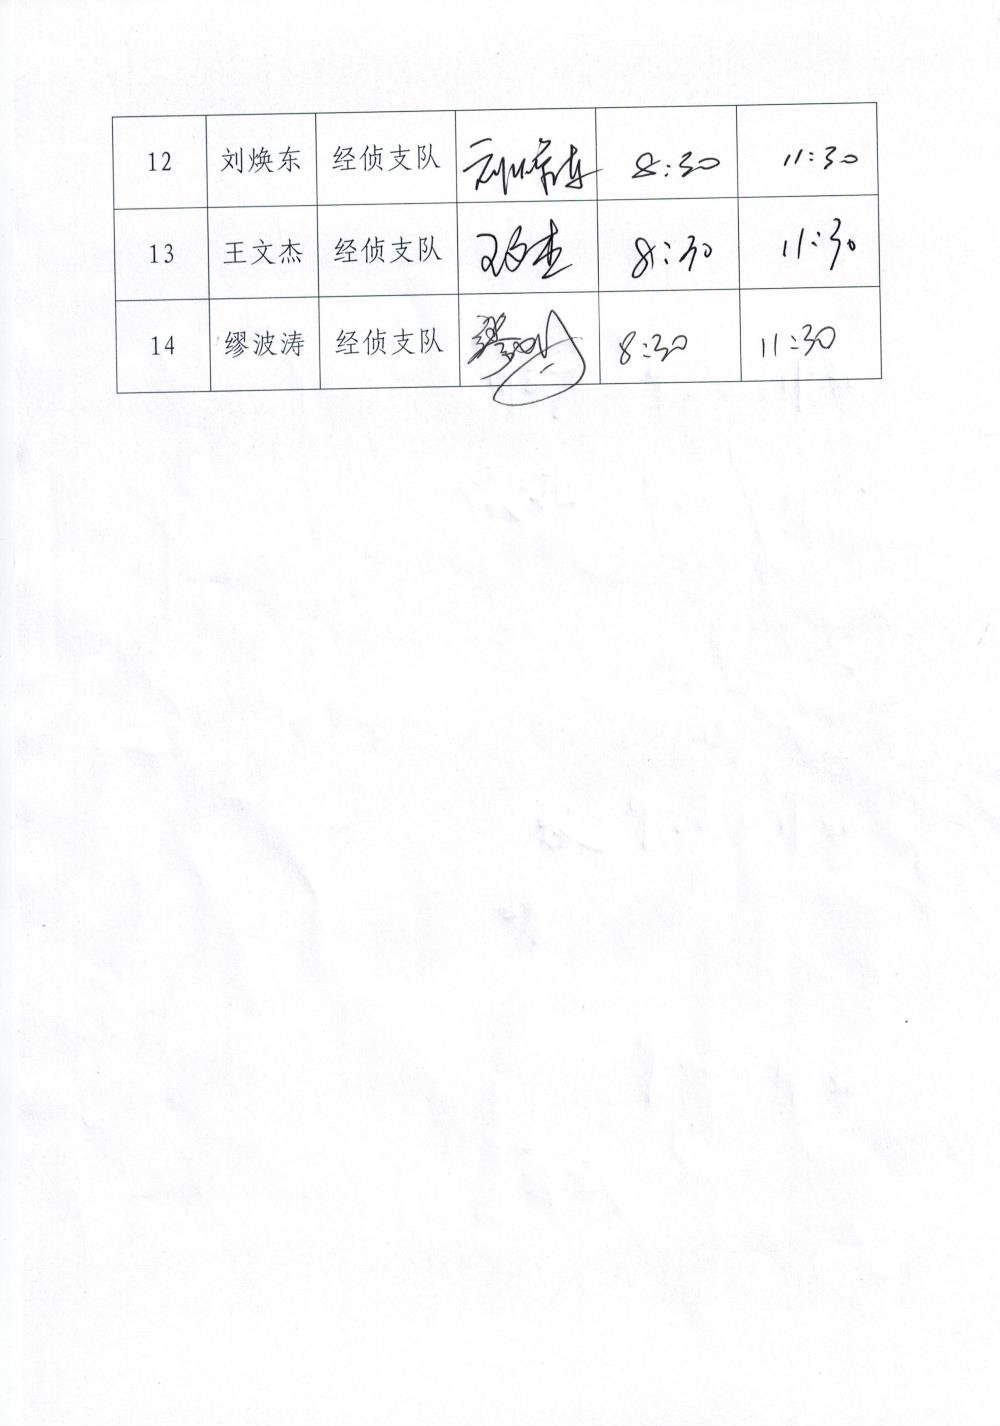 12 刘焕东 经侦支队 刘焕东 8:30 11:30
13 王文杰 经侦支队 王文杰 8:30 11:30
14 缪波涛 经侦支队 缪波涛 8:30 11:30